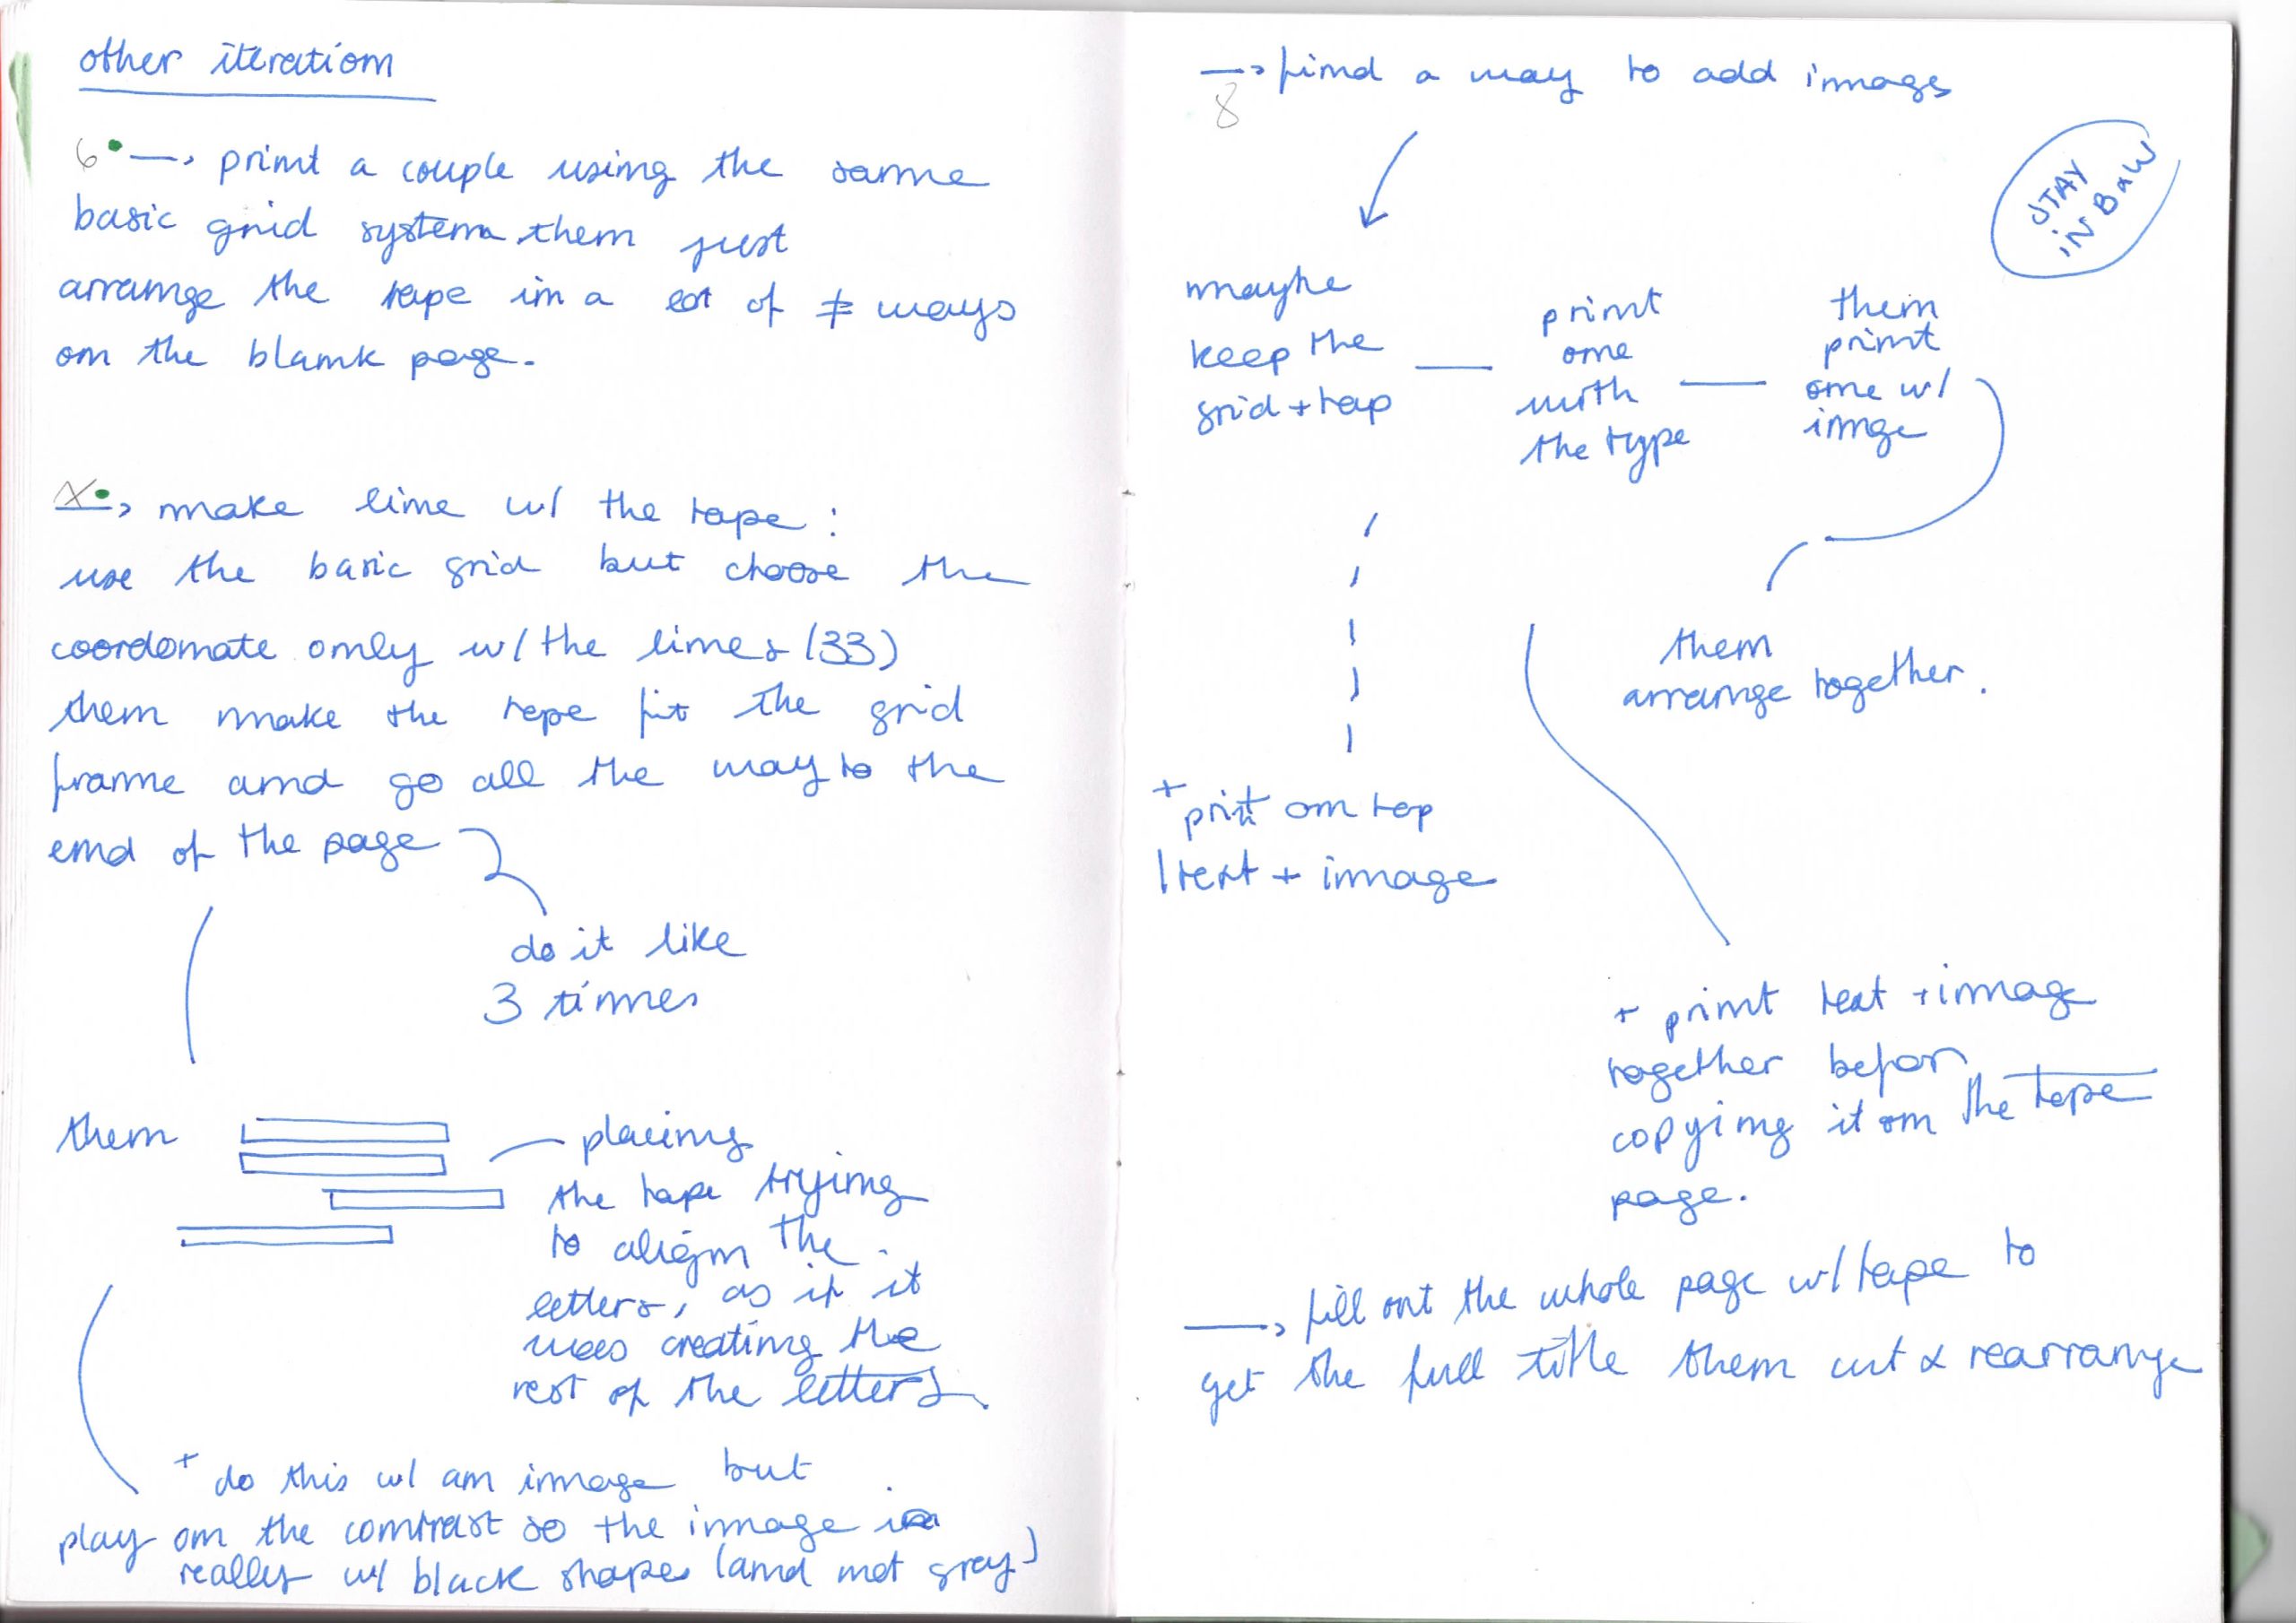 other iteration
6 • → print a couple using the same
basic grid system then just
arrange the tape in a lot of ≠ ways
on the blank page.
• → make line w/ the tape :
use the basic grid but choose the
coordonate only w/ the lines (33)
then make the tape fit the grid
frame and go all the way to the
end of the page
do it like
3 times
then
placing
the tape trying
to align the
letters, as if it
was creating the
rest of the letters.
+ do this w/ an image but
play on the contrast so the image is
really w/ black shapes (and not grey)
→ find a way to add images
8
STAY
IN B&W
maybe
keep the
grid + tap
print
one
with
the type
then
print
one w/
imge
then
arrange together.
+ print on top
text + image
+ print text + image
together befor
copying it on the tape
page.
→ fill out the whole page w/ tape to
get the full title then cut & rearrange